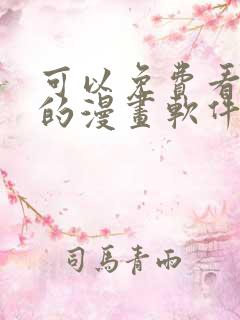 可以免費看
的漫畫軟件
司馬青雨